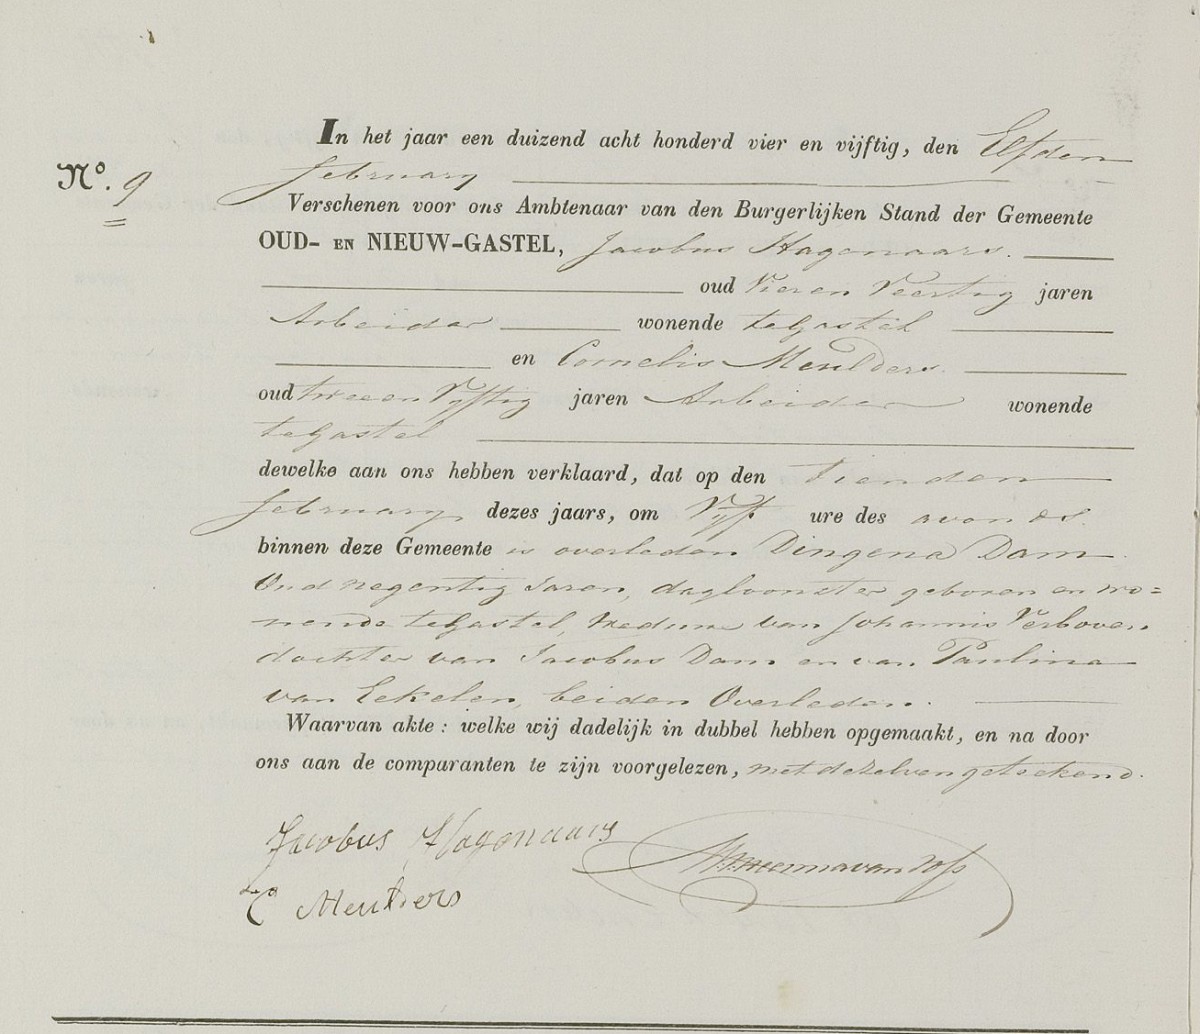 In het jaar een duizend acht honderd vier en vijftig, den Elfden
No. 9
february
Verschenen voor ons Ambtenaar van den Burgerlijken Stand der Gemeente
OUD- EN NIEUW-GASTEL, Jacobus Hagenaars.
oud Vier en Veertig jaren
Arbeider wonende te Gastel
en Cornelis Meulders.
oud twee en Vijftig jaren Arbeider wonende
te Gastel
dewelke aan ons hebben verklaard, dat op den tienden
february dezes jaars, om Vijf ure des avonds
binnen deze Gemeente is overleden Dingena Dam
Oud negentig Jaren, dagloonster geboren en wo=
nende te Gastel, Weduwe van Johannis Verboven
dochter van Jacobus Dam en van Paulina
van Eekelen, beiden Overleden.
Waarvan akte: welke wij dadelijk in dubbel hebben opgemaakt, en na door
ons aan de comparanten te zijn voorgelezen, met dezelven geteekend.
Jacobus Hagenaars
C Meulders